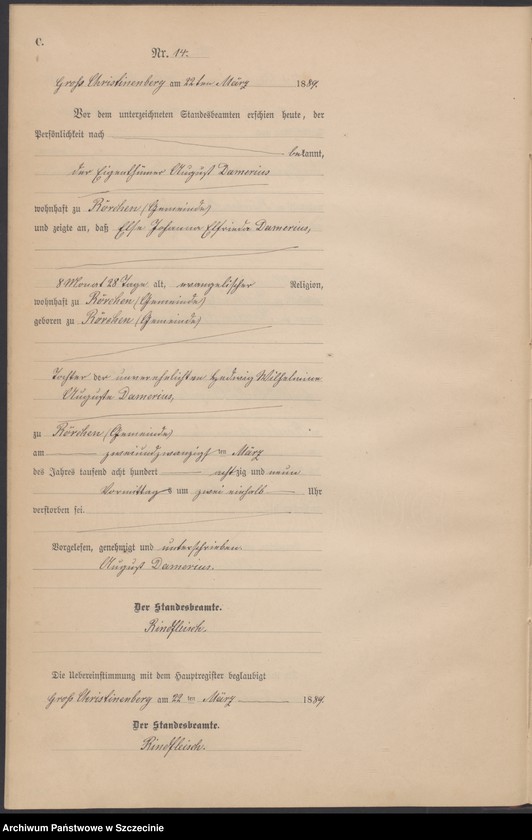 C.
Nr. 14.
Groß Christinenberg am 22ten März 1889.
Vor dem unterzeichneten Standesbeamten erschien heute, der
Persönlichkeit nach
bekannt,
der Eigenthümer August Damerius
wohnhaft zu Rörchen (Gemeinde)
und zeigte an, daß Else Johanna Elfriede Damerius,
8 Monat 28 Tage alt, evangelischer Religion,
wohnhaft zu Rörchen (Gemeinde)
geboren zu Rörchen (Gemeinde)
Tochter der unverehelichten Hedwig Wilhelmine
Auguste Damerius,
zu Rörchen (Gemeinde)
am zweiundzwanzigsten März
des Jahres tausend acht hundert achtzig und neun
Vormittags um zwei einhalb Uhr
verstorben sei.
Vorgelesen, genehmigt und unterschrieben
August Damerius.
Der Standesbeamte.
Rindfleisch.
Die Uebereinstimmung mit dem Hauptregister beglaubigt
Groß Christinenberg am 22ten März 1889.
Der Standesbeamte.
Rindfleisch.
Archiwum Państwowe w Szczecinie